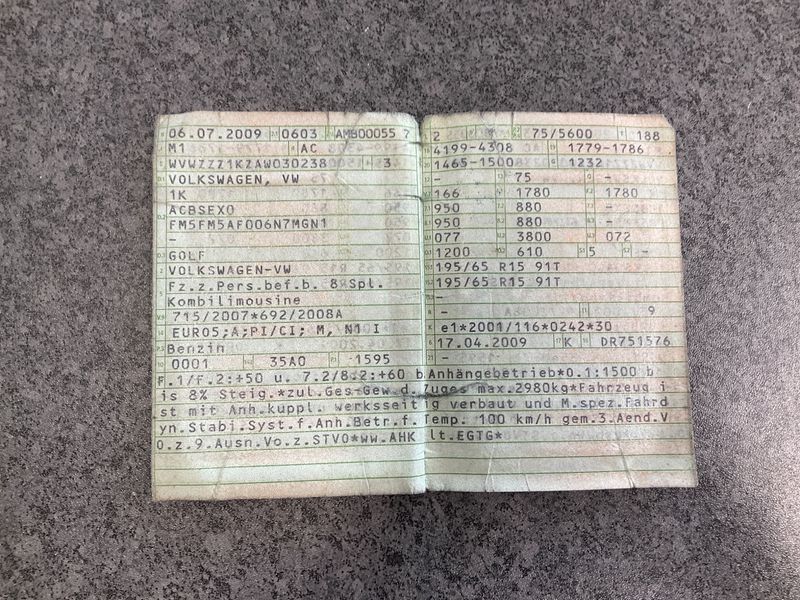 06.07.2009 0603 AMB00055 7
M1 AC
WVWZZZ1KZAW030238 3
VOLKSWAGEN, VW
1K
ACBSEX0
FM5FM5AF006N7MGN1
-
GOLF
VOLKSWAGEN-VW
Fz.z.Pers.bef.b. 8 Spl.
Kombilimousine
715/2007*692/2008A
EURO5;A;PI/CI; M, N1 I
Benzin
0001 35A0 1595
2 75/5600 188
4199-4308 1779-1786
1465-1500 1232
- 75 -
166 1780 1780
950 880 -
950 880 -
077 3800 072
1200 610 5 -
195/65 R15 91T
195/65 R15 91T
-
- - 9
K e1*2001/116*0242*30
17.04.2009 K DR751576
-
F.1/F.2:+50 u. 7.2/8.2:+60 b.Anhängebetrieb*0.1:1500 b
is 8% Steig.*zul.Ges-Gew.d.Zuges max.2980kg*Fahrzeug i
st mit Anh.kuppl. werksseitig verbaut und M.spez.Fahrd
yn.Stabi.Syst.f.Anh.Betr.f.Temp. 100 km/h gem.3.Aend.V
O.z.9.Ausn.Vo.z.STVO*ww.AHK lt.EGTG*